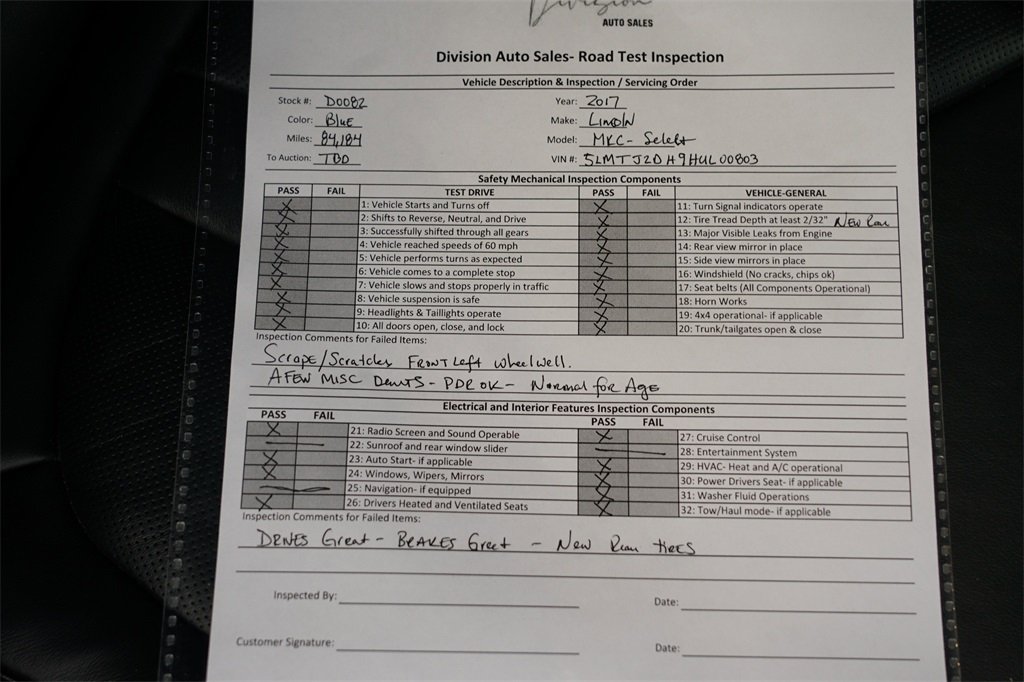 Division
AUTO SALES
Division Auto Sales- Road Test Inspection
Vehicle Description & Inspection / Servicing Order
Stock #: D0082 Year: 2017
Color: Blue Make: Lincoln
Miles: 84,184 Model: MKC- Select
To Auction: TBD VIN #: 5LMTJ2DH9HUL00803
Safety Mechanical Inspection Components
PASS FAIL TEST DRIVE PASS FAIL VEHICLE-GENERAL
X 1: Vehicle Starts and Turns off X 11: Turn Signal indicators operate
X 2: Shifts to Reverse, Neutral, and Drive X 12: Tire Tread Depth at least 2/32" New Rear
X 3: Successfully shifted through all gears X 13: Major Visible Leaks from Engine
X 4: Vehicle reached speeds of 60 mph X 14: Rear view mirror in place
X 5: Vehicle performs turns as expected X 15: Side view mirrors in place
X 6: Vehicle comes to a complete stop X 16: Windshield (No cracks, chips ok)
X 7: Vehicle slows and stops properly in traffic X 17: Seat belts (All Components Operational)
X 8: Vehicle suspension is safe X 18: Horn Works
X 9: Headlights & Taillights operate X 19: 4x4 operational- if applicable
X 10: All doors open, close, and lock X 20: Trunk/tailgates open & close
Inspection Comments for Failed Items:
Scrape/Scratches Front Left wheel well.
A FEW MISC Dents - PDR OK - Normal for Age
Electrical and Interior Features Inspection Components
PASS FAIL PASS FAIL
X 21: Radio Screen and Sound Operable X 27: Cruise Control
22: Sunroof and rear window slider 28: Entertainment System
X 23: Auto Start- if applicable X 29: HVAC- Heat and A/C operational
X 24: Windows, Wipers, Mirrors X 30: Power Drivers Seat- if applicable
25: Navigation- if equipped X 31: Washer Fluid Operations
X 26: Drivers Heated and Ventilated Seats X 32: Tow/Haul mode- if applicable
Inspection Comments for Failed Items:
DRIVES Great - BRAKES Great - New Rear tires
Inspected By: Date:
Customer Signature: Date: